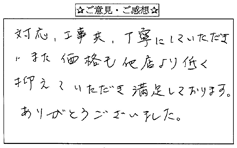 ☆ご意見・ご感想☆
対応、工事共、丁寧にしていただき
、また価格も他店より低く
抑えていただき満足しております。
ありがとうございました。